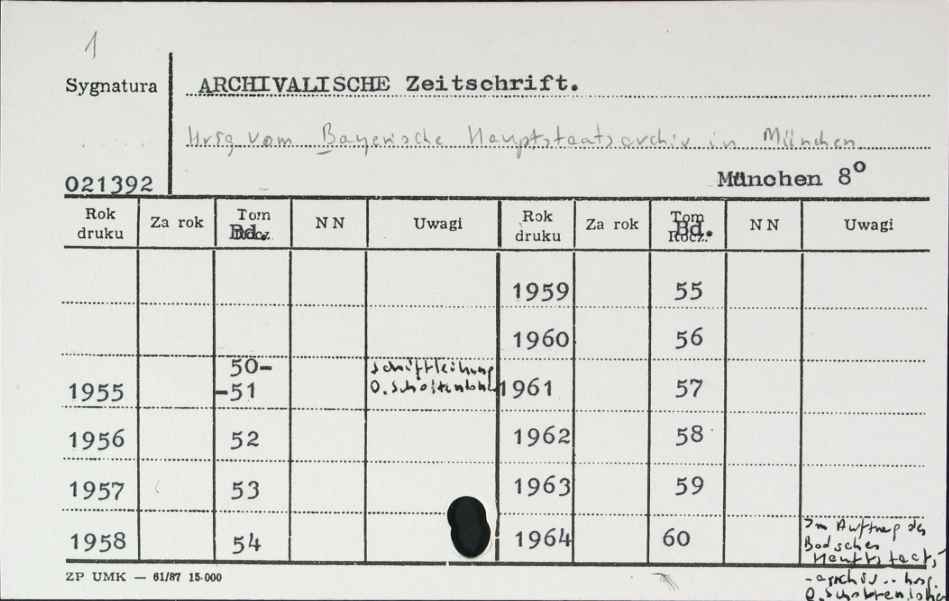 1
Sygnatura ARCHIVALISCHE Zeitschrift.
Hrsg vom Bayerische Hauptstaatsarchiv in München
021392 München 8º
Rok druku Za rok Tom Bd. Rocz. NN Uwagi Rok druku Za rok Tom Bd. Rocz. NN Uwagi
1959 55
1960 56
1955 50-
-51 Schriftleitung
O. 1961 57
1956 52 1962 58
1957 53 1963 59
1958 54 1964 60 Im Auftrag des
Hauptstaats
-archiv .. hrsg.
O.
ZP UMK — 61/87 15·000